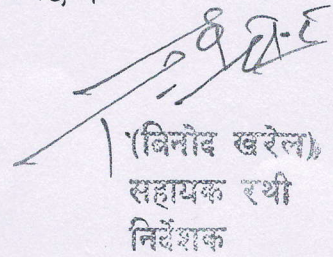 (बिनोद खरेल)
सहायक रथी
निर्देशक